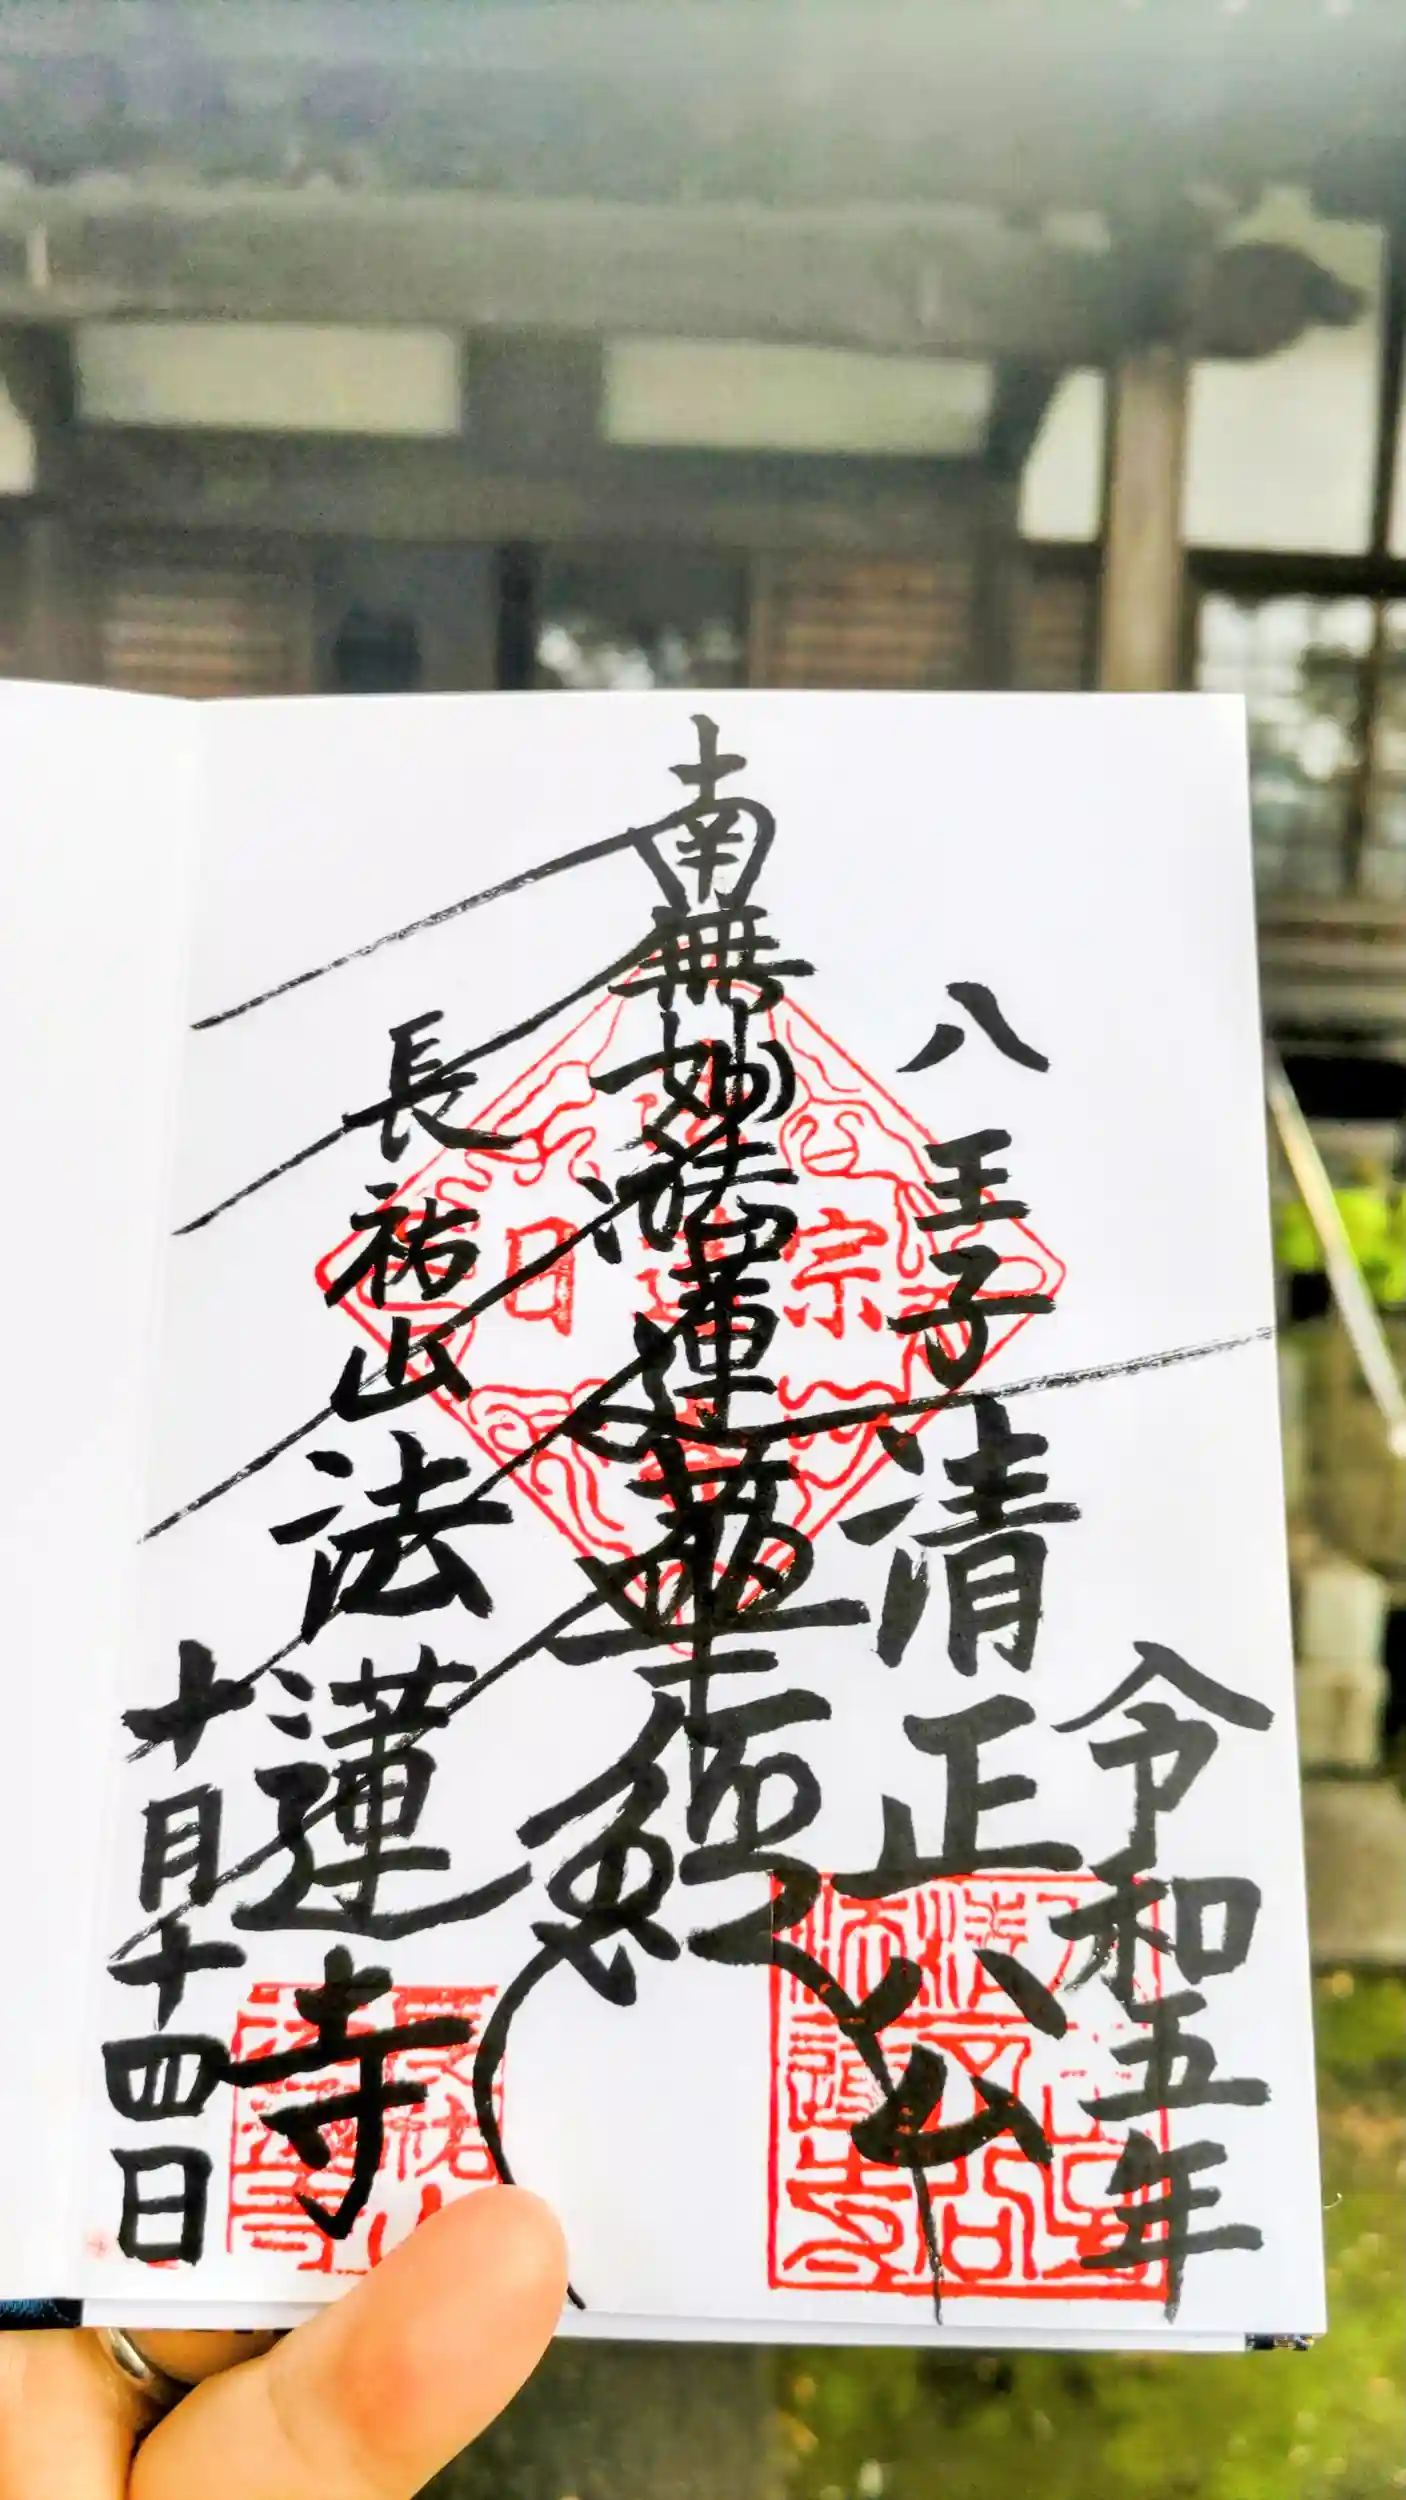 令和五年
八王子清正公
南無妙法蓮華経
長祐山法蓮寺
十月十四日
宗
日